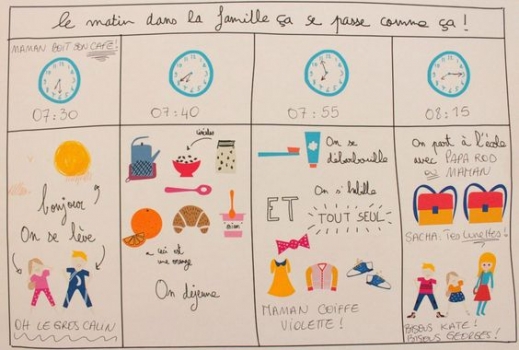 le matin dans la famille ça se passe comme ça !
MAMAN BOIT SON CAFÉ !
07:30
07:40
07:55
08:15
bonjour
On se lève
OH LE GROS CALIN
céréales
ceci est
une orange
On déjeune
On se
débarbouille
On s'habille
ET TOUT SEUL
MAMAN COIFFE
VIOLETTE !
On part à l'école
avec PAPA ROD
ou MAMAN
SACHA: TES LUNETTES !
BISOUS KATE !
BISOUS GEORGES !